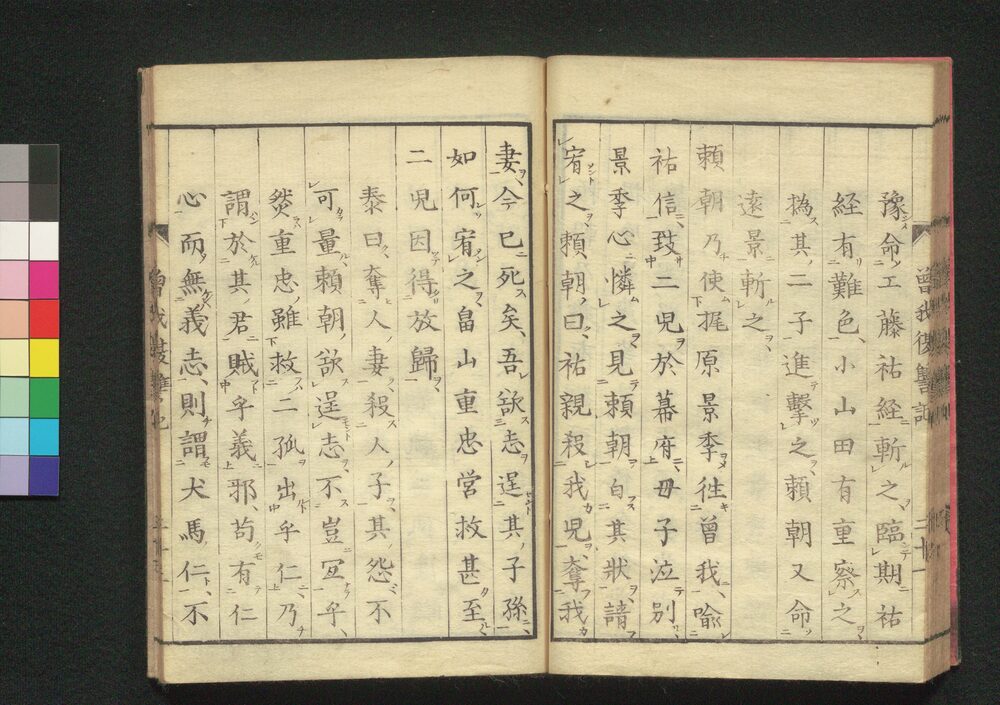 豫命工藤祐経斬之臨期祐
経有難色小山田有重察之
撝其二子進撃之頼朝又命
遠景斬之
頼朝乃使梶原景季徃曽我喩
祐信致二児於幕府母子泣別
景季心憐之見頼朝白其狀請
宥之頼朝曰祐親殺我児奪我
妻今已死矣吾欲志逞其子孫
如何宥之畠山重忠営救甚至
二児因得放歸
泰曰奪人妻殺人子其怨不
可量頼朝欲逞志不豈宜乎
然重忠雖救二孤出乎仁乃
謂於其君賊乎義邪苟有仁
心而無義志則謂犬馬仁不